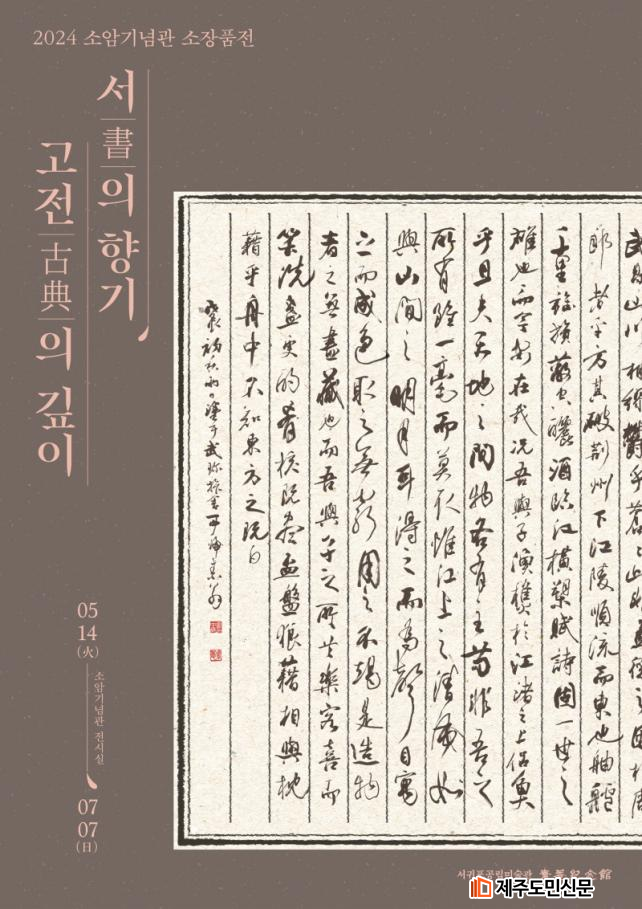 2024 소암기념관 소장품전
서書의 향기
고전古典의 깊이
05
14
(火)
소암기념관 전시실
07
07
(日)
郎者乎方其破荊州下江陵順流而東也舳艫
千里旌旗蔽空釃酒臨江橫槊賦詩固一世之
雄也而今安在哉況吾與子漁樵於江渚之上侶魚
乎且夫天地之間物各有主苟非吾之
所有雖一毫而莫取惟江上之清風
與山間之明月耳得之而為聲目寓
之而成色取之無禁用之不竭是造物
者之無盡藏也而吾與子之所共樂客喜而
笑洗盞更酌肴核既盡盃盤狼藉相與枕
藉乎舟中不知東方之既白
서귀포공립미술관
제주도민신문